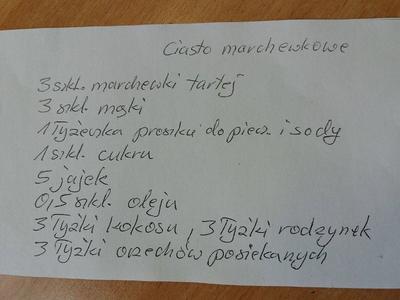 Ciasto marchewkowe
3 szkl. marchewki tartej
3 szkl. mąki
1 łyżeczka proszku do piecz. i sody
1 szkl. cukru
5 jajek
0,5 szkl. oleju
3 łyżki kokosu, 3 łyżki rodzynek
3 łyżki orzechów posiekanych